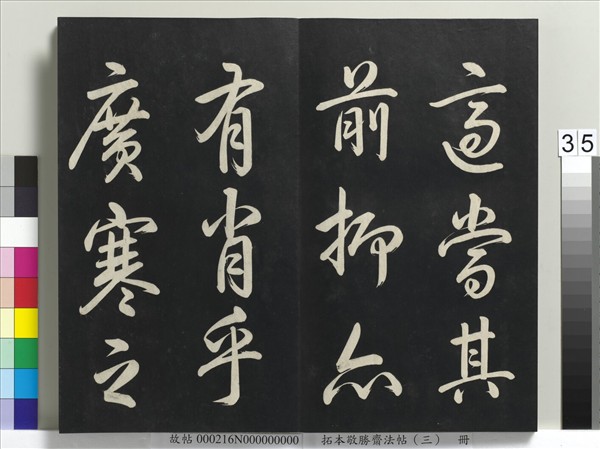 適當其
前抑亦
有肖乎
廣寒之
35
故帖 000216N000000000 拓本敬勝齋法帖(三) 冊